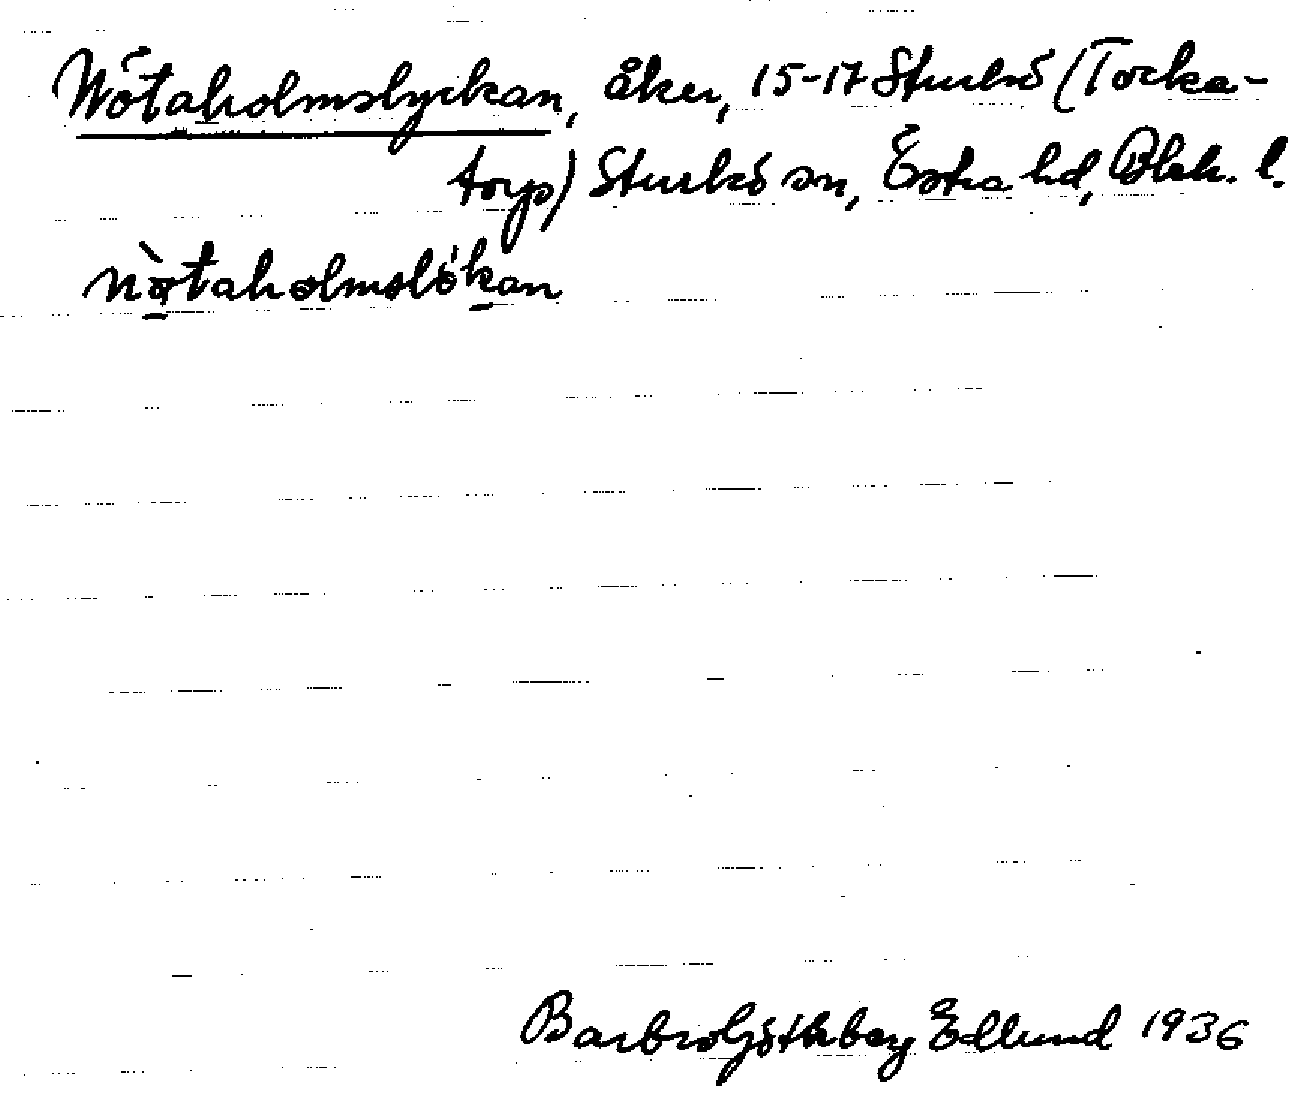 Nötaholmslyckan, åker, 15-17 Sturkö (Tocka-
torp) Sturkö sn, Östra hd, Blek. l.
nòtaholmslökan
Barbro Göthberg Edlund 1936